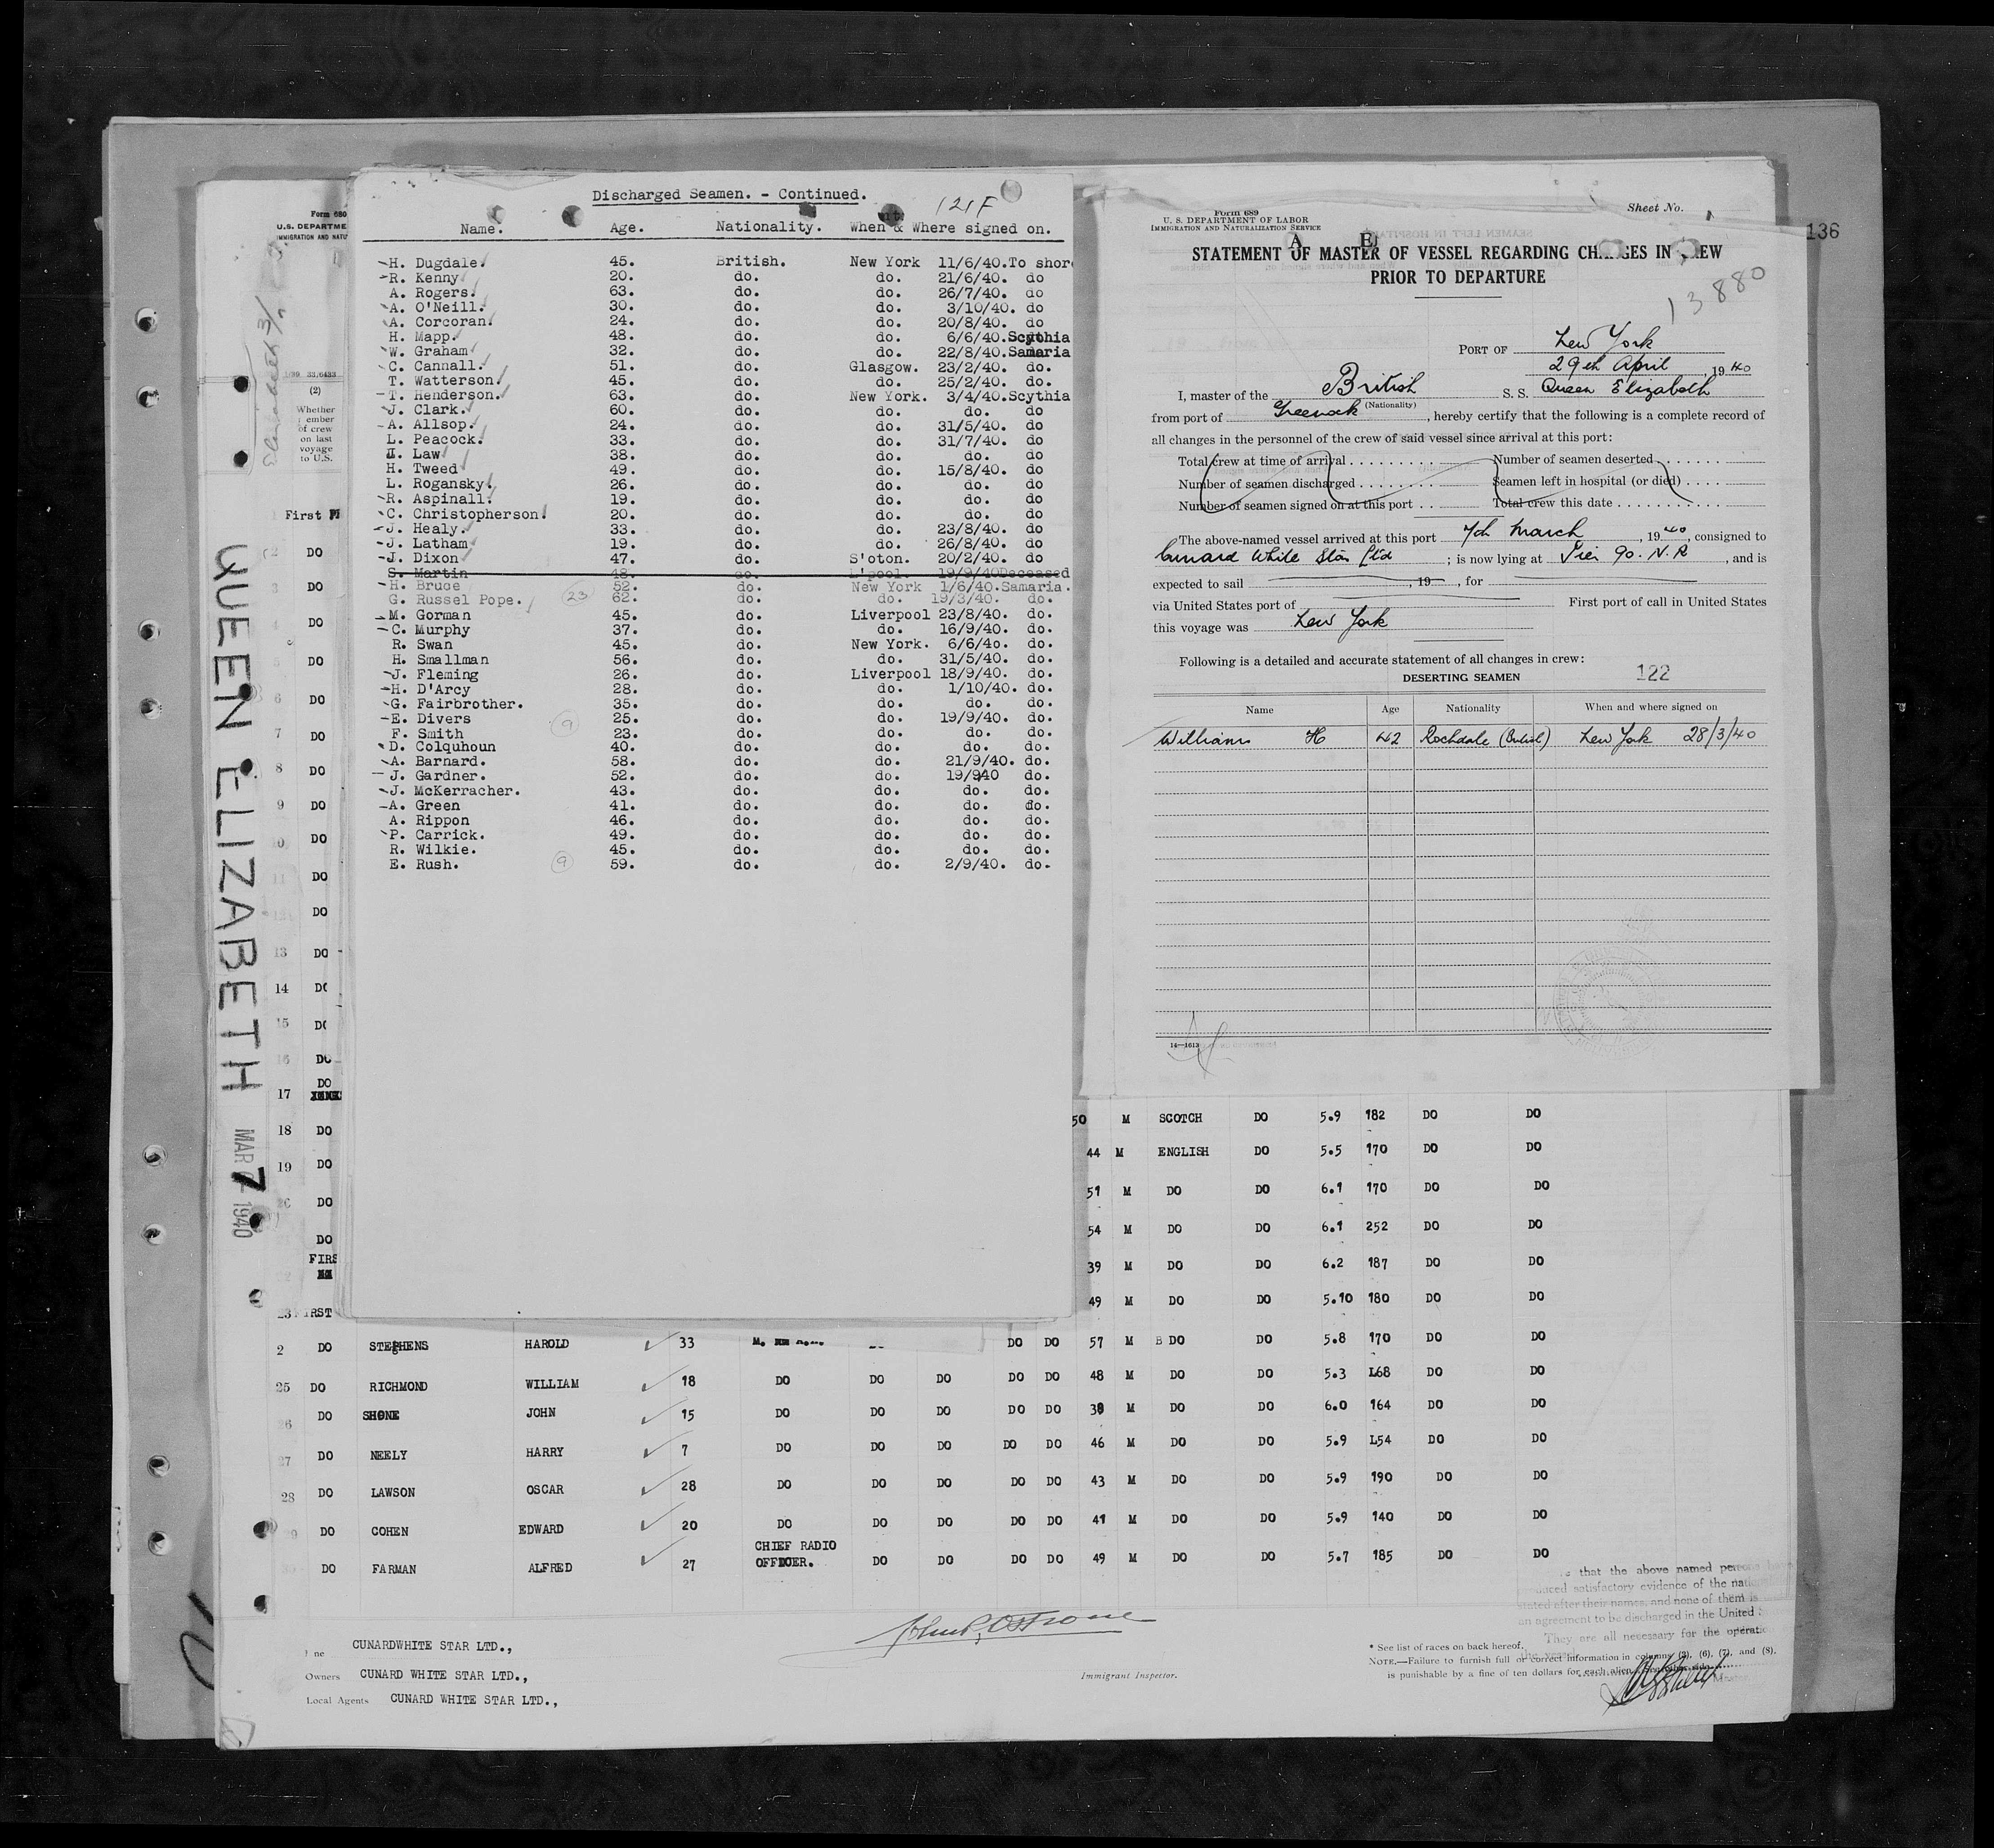 Discharged Seamen. - Continued.
121F
Name. Age. Nationality. When & Where signed on.
H. Dugdale. 45. British. New York 11/6/40. To shore
R. Kenny 20. do. do. 21/6/40. do
A. Rogers. 63. do. do. 26/7/40. do
A. O'Neill. 30. do. do. 3/10/40. do
A. Corcoran. 24. do. do. 20/8/40. do
H. Mapp. 48. do. do. 6/6/40. Scythia
W. Graham 32. do. do. 22/8/40. Samaria
C. Cannall. 51. do. Glasgow. 23/2/40. do
T. Watterson. 45. do. do. 25/2/40. do.
T. Henderson. 63. do. New York. 3/4/40. Scythia
J. Clark. 60. do. do. do. do
A. Allsop. 24. do. do. 31/5/40. do
L. Peacock. 33. do. do. 31/7/40. do
Law 38. do. do. do. do
H. Tweed 49. do. do. 15/8/40. do
L. Rogansky. 26. do. do. do. do
R. Aspinall. 19. do. do. do. do
C. Christopherson. 20. do. do. do. do
J. Healy. 33. do. do. 23/8/40. do
J. Latham 19. do. do. 26/8/40. do
J. Dixon 47. do. S'oton. 20/2/40. do
S. Martin 48. do. L'pool. 19/9/40 Deceased
H. Bruce 52. do. New York 1/6/40. Samaria.
G. Russel Pope. 23 62. do. do. 19/3/40. do.
M. Gorman 45. do. Liverpool 23/8/40. do.
C. Murphy 37. do. do. 16/9/40. do.
R. Swan 45. do. New York. 6/6/40. do.
H. Smallman 56. do. do. 31/5/40. do.
J. Fleming 26. do. Liverpool 18/9/40. do.
H. D'Arcy 28. do. do. 1/10/40. do.
G. Fairbrother. 35. do. do. do. do.
E. Divers 9 25. do. do. 19/9/40. do.
F. Smith 23. do. do. do. do.
D. Colquhoun 40. do. do. do. do.
A. Barnard. 58. do. do. 21/9/40. do.
J. Gardner. 52. do. do. 19/940 do.
J. McKerracher. 43. do. do. do. do.
A. Green 41. do. do. do. do.
A. Rippon 46. do. do. do. do.
P. Carrick. 49. do. do. do. do.
R. Wilkie. 45. do. do. do. do.
E. Rush. 9 59. do. do. 2/9/40. do.
Form 689
U. S. DEPARTMENT OF LABOR
IMMIGRATION AND NATURALIZATION SERVICE
Sheet No.
136
A E
STATEMENT OF MASTER OF VESSEL REGARDING CHANGES IN CREW
PRIOR TO DEPARTURE
13880
PORT OF New York
29th April, 1940
I, master of the British S. S. Queen Elizabeth
(Nationality)
from port of Greenock, hereby certify that the following is a complete record of
all changes in the personnel of the crew of said vessel since arrival at this port:
Total crew at time of arrival Number of seamen deserted
Number of seamen discharged Seamen left in hospital (or died)
Number of seamen signed on at this port Total crew this date
The above-named vessel arrived at this port 7th March, 1940, consigned to
Cunard White Star Ltd ; is now lying at Pier 90. N.R, and is
expected to sail , 19 , for
via United States port of First port of call in United States
this voyage was New York
Following is a detailed and accurate statement of all changes in crew:
DESERTING SEAMEN 122
Name Age Nationality When and where signed on
Williams H 42 Rochdale (British) New York 28/3/40
14—1613
Form 680
U.S. DEPARTME
IMMIGRATION AND NATU
(2)
Whether
ember
of crew
on last
voyage
to U.S.
First
QUEEN ELIZABETH MAR 7 1940
2 DO
3 DO
4 DO
5 DO
6 DO
7 DO
8 DO
9 DO
10 DO
11 DO
12 DO
13 DO
14 DO
15 DO
16 DO
17 DO
18 DO 50 M SCOTCH DO 5.9 182 DO DO
19 DO 44 M ENGLISH DO 5.5 170 DO DO
20 DO 51 M DO DO 6.1 170 DO DO
DO 54 M DO DO 6.1 252 DO DO
FIRS 39 M DO DO 6.2 187 DO DO
23 RST 49 M DO DO 5.10 180 DO DO
2 DO STEPHENS HAROLD 33 DO DO 57 M B DO DO 5.8 170 DO DO
25 DO RICHMOND WILLIAM 18 DO DO DO DO DO 48 M DO DO 5.3 L68 DO DO
26 DO SHONE JOHN 15 DO DO DO DO DO 38 M DO DO 6.0 164 DO DO
27 DO NEELY HARRY 7 DO DO DO DO DO 46 M DO DO 5.9 L54 DO DO
28 DO LAWSON OSCAR 28 DO DO DO DO DO 43 M DO DO 5.9 190 DO DO
29 DO COHEN EDWARD 20 DO DO DO DO DO 41 M DO DO 5.9 140 DO DO
30 DO FARMAN ALFRED 27 CHIEF RADIO OFFICER. DO DO DO DO 49 M DO DO 5.7 185 DO DO
that the above named persons
satisfactory evidence of the nati
stated after their names, and none of them is
an agreement to be discharged in the United
They are all necessary for the operati
ne CUNARDWHITE STAR LTD.,
Owners CUNARD WHITE STAR LTD.,
Local Agents CUNARD WHITE STAR LTD.,
Immigrant Inspector.
* See list of races on back hereof.
NOTE.—Failure to furnish full or correct information in columns (5), (6), (7), and (8),
is punishable by a fine of ten dollars for each alien.